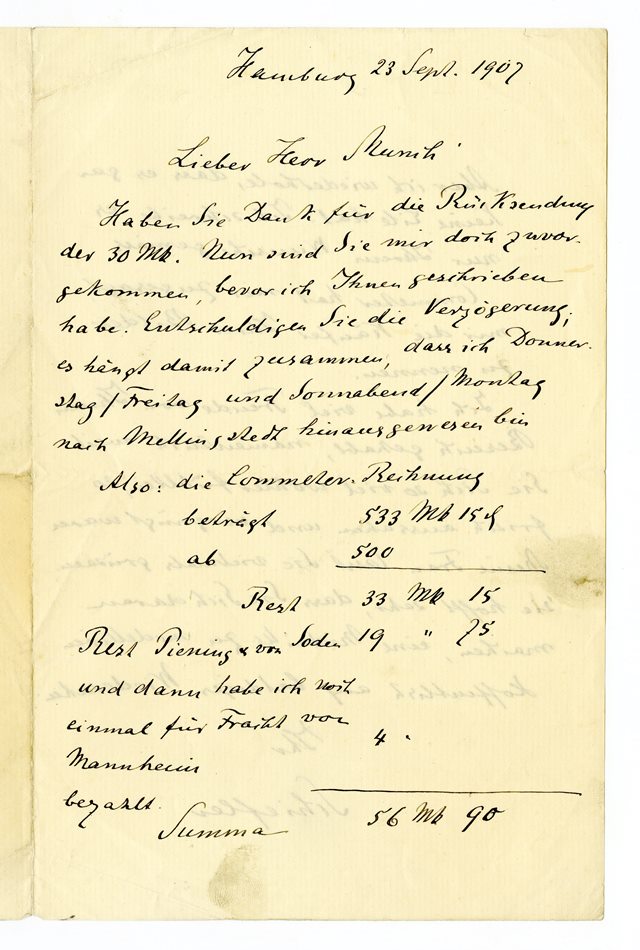 Hamburg 23 Sept. 1907
Lieber Herr Munch
Haben Sie Dank für die Rücksendung
der 30 Mk. Nun sind Sie mir doch zuvor-
gekommen, bevor ich Ihnen geschrieben
habe. Entschuldigen Sie die Verzögerung;
es hängt damit zusammen, dass ich Donner-
stag / Freitag und Sonnabend / Montag
nach Mellingstedt hinausgewesen bin
Also: die Commeter-Rechnung
beträgt 533 Mk 15 ₰
ab 500
Rest 33 Mk 15
Rest Piening & von Soden 19 " 75
und dann habe ich noch
einmal für Fracht von 4 "
Mannheim
bezahlt.
Summa 56 Mk 90